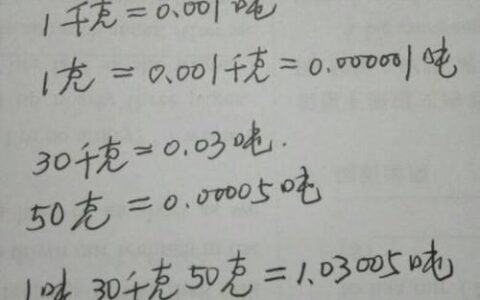 1千克=0.001吨
1克=0.001千克=0.000001吨
30千克=0.03吨.
50克=0.00005吨
1吨30千克50克=1.03005吨